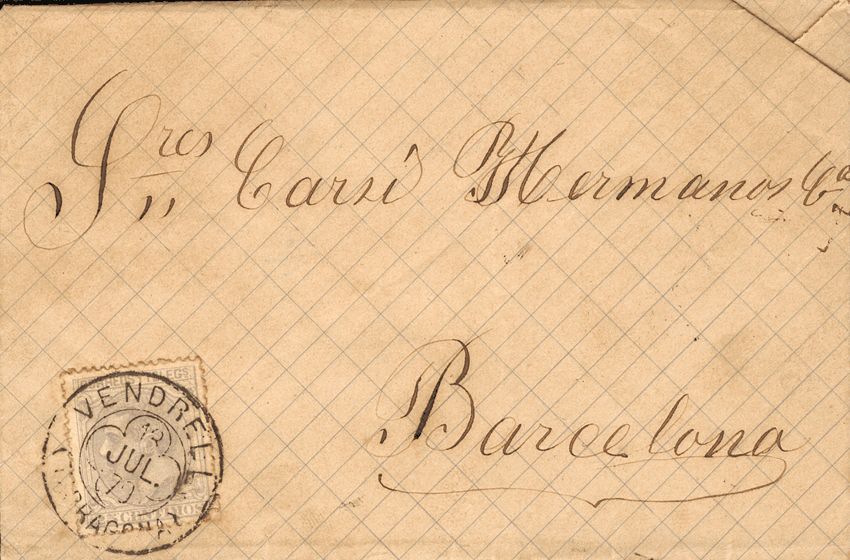 Sres Carsi Hermanos Ca
Barcelona
VENDRELL
12
JUL.
(TARRAGONA)
CORREOS Y TELEGS
CENTIMOS